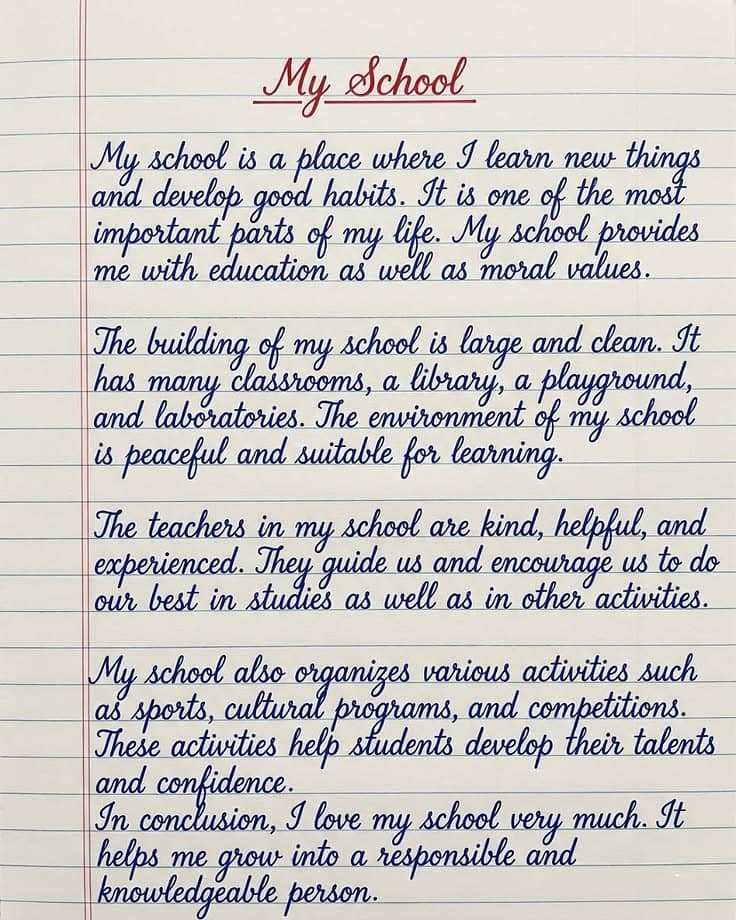 My School
My school is a place where I learn new things
and develop good habits. It is one of the most
important parts of my life. My school provides
me with education as well as moral values.
The building of my school is large and clean. It
has many classrooms, a library, a playground,
and laboratories. The environment of my school
is peaceful and suitable for learning.
The teachers in my school are kind, helpful, and
experienced. They guide us and encourage us to do
our best in studies as well as in other activities.
My school also organizes various activities such
as sports, cultural programs, and competitions.
These activities help students develop their talents
and confidence.
In conclusion, I love my school very much. It
helps me grow into a responsible and
knowledgeable person.